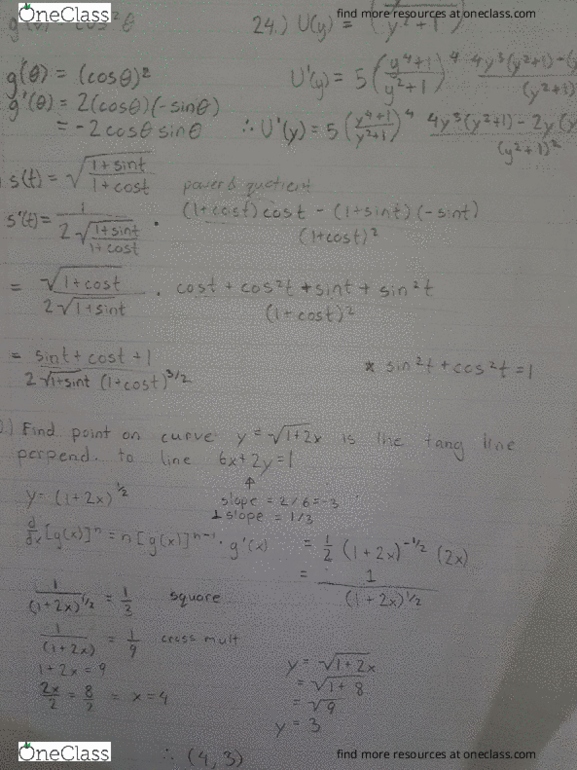 OneClass
find more resources at oneclass.com
g(θ) = cos²θ
24.) U(y) = (/y²+1)
g(θ) = (cosθ)²
g'(θ) = 2(cosθ)(-sinθ)
= -2cosθ sinθ
U'(y) = 5 ((y⁴+1)/(y²+1))⁴ 4y³(y²+1) - (
(y²+1)
∴ U'(y) = 5 ((y⁴+1)/(y²+1))⁴ 4y³(y²+1) - 2y(y
(y²+1)²
s(t) = √((1+sint)/(1+cost)) power & quotient
s'(t) = 1/(2√((1+sint)/(1+cost))) · ((1+cost)cost - (1+sint)(-sint))/(1+cost)²
= √(1+cost)/(2√(1+sint)) · (cost + cos²t + sint + sin²t)/(1+cost)²
= (sint + cost + 1)/(2√(1+sint) (1+cost)^3/2) * sin²t + cos²t = 1
.) Find point on curve y = √(1+2x) is the tang line
perpend. to line 6x+2y=1
↑
y = (1+2x)^1/2
slope = 2/6 = -3
⊥ slope = 1/3
d/dx [g(x)]ⁿ = n[g(x)]ⁿ⁻¹ · g'(x) = 1/2 (1+2x)^-1/2 (2x)
= 1/(1+2x)^1/2
1/(1+2x)^1/2 = 1/3 square
1/(1+2x) = 1/9 cross mult
1+2x = 9
2x/2 = 8/2 = x=4
y = √(1+2x)
= √(1+8)
= √9
y = 3
∴ (4,3)
OneClass
find more resources at oneclass.com